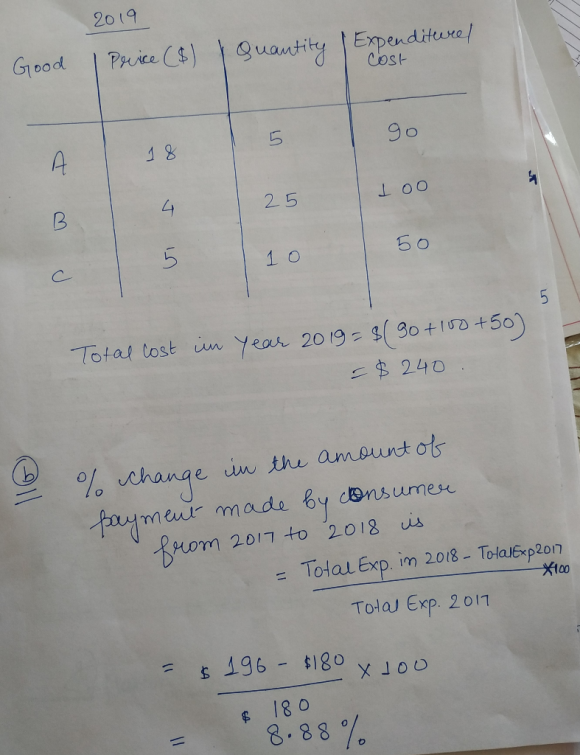 2019
Good Price ($) Quantity Expenditure/
Cost
A 18 5 90
B 4 25 100
C 5 10 50
5
Total Cost in Year 2019 = $(90+100+50)
= $ 240.
(b) % change in the amount of
payment made by consumer
from 2017 to 2018 is
= Total Exp. in 2018 - Total Exp 2017
X100
Total Exp. 2017
= $ 196 - $180 X 100
$ 180
= 8.88 %